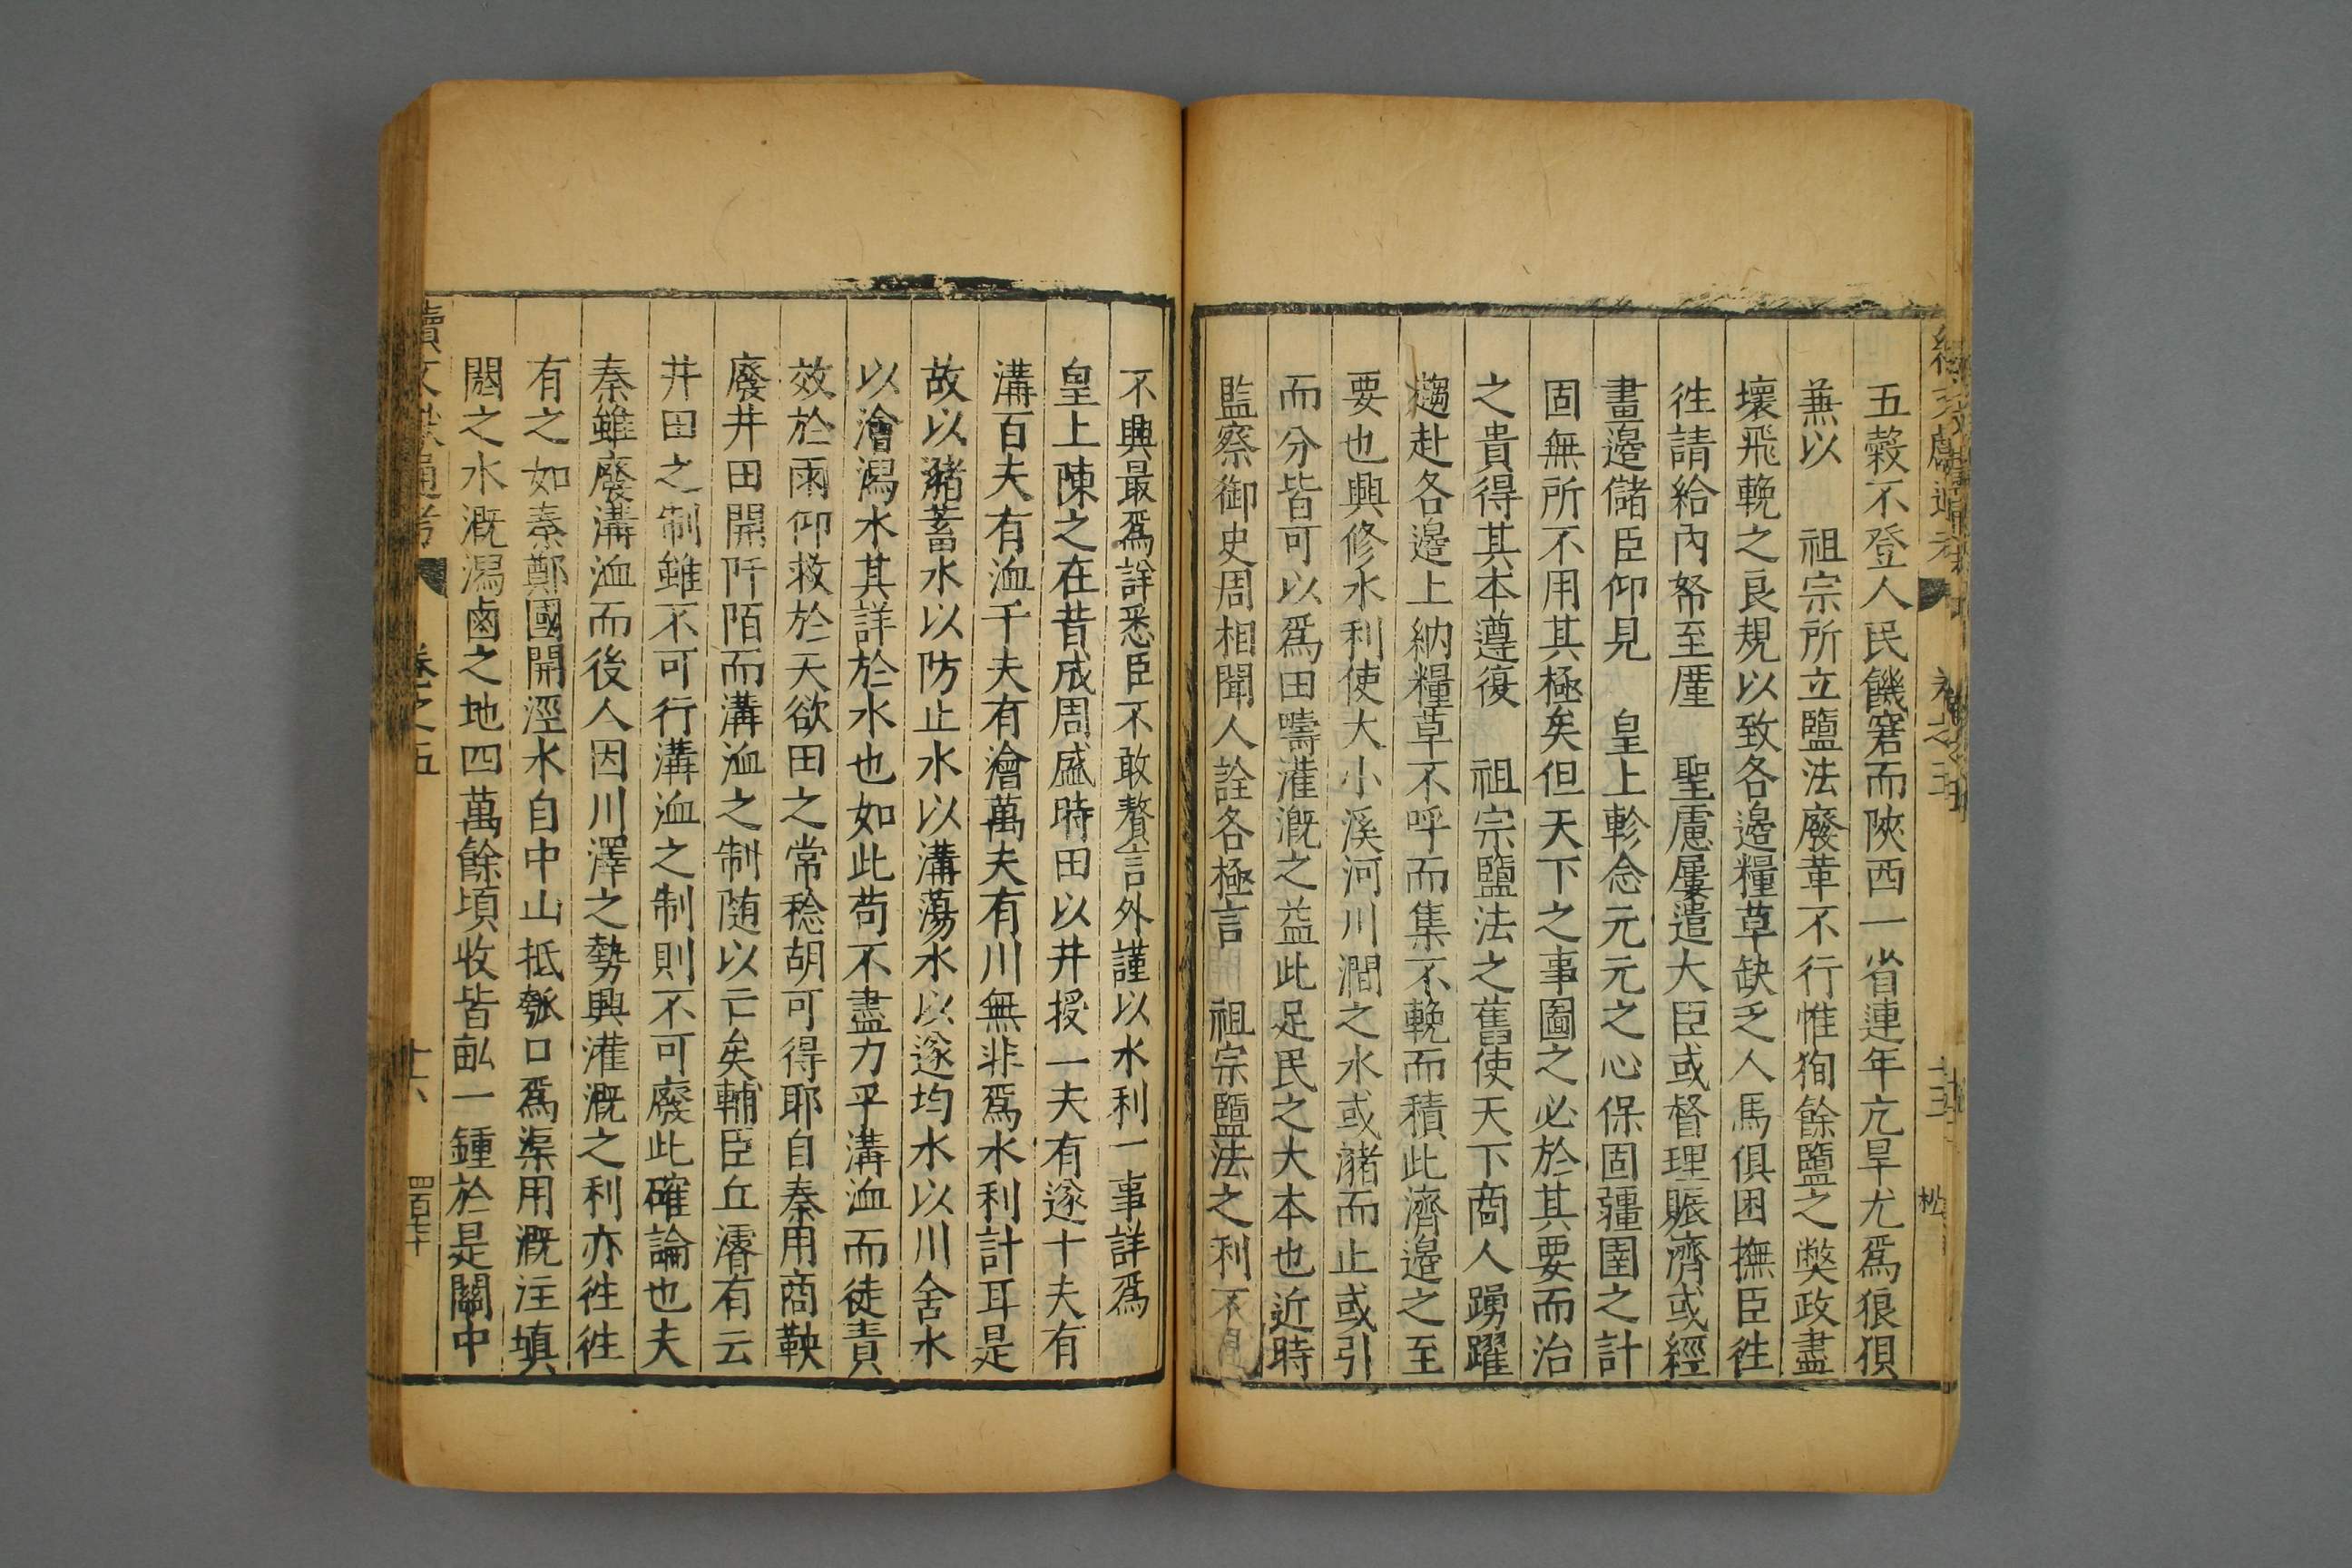 五穀不登人民饑窘而陝西一省連年亢旱尤爲狼狽
兼以　祖宗所立鹽法廢革不行惟狥餘鹽之獘政盡
壞飛輓之良規以致各邊糧草缺乏人馬俱困撫臣徃
徃請給內帑至厪　聖慮屢遣大臣或督理賑濟或經
畫邊儲臣仰見　皇上軫念元元之心保固疆圉之計
固無所不用其極矣但天下之事圖之必於其要而治
之貴得其本遵復　祖宗鹽法之舊使天下商人踴躍
趨赴各邊上納糧草不呼而集不輓而積此濟邊之至
要也興修水利使大小溪河川澗之水或瀦而止或引
而分皆可以爲田疇灌溉之益此足民之大本也近時
監察御史周相聞人詮各極言　祖宗鹽法之利不
不興最爲詳悉臣不敢贅言外謹以水利一事詳爲
皇上陳之在昔成周盛時田以井授一夫有遂十夫有
溝百夫有洫千夫有澮萬夫有川無非爲水利計耳是
故以瀦蓄水以防止水以溝蕩水以遂均水以川舍水
以澮瀉水其詳於水也如此苟不盡力乎溝洫而徒責
效於雨仰救於天欲田之常稔胡可得耶自秦用商鞅
廢井田開阡陌而溝洫之制随以亡矣輔臣丘濬有云
井田之制雖不可行溝洫之制則不可廢此確論也夫
秦雖廢溝洫而後人因川澤之勢興灌溉之利亦徃徃
有之如秦鄭國開涇水自中山抵瓠口爲渠用溉注填
閼之水溉瀉鹵之地四萬餘頃收皆畝一鍾於是關中
續文獻通考　卷之五　十六　四百七十